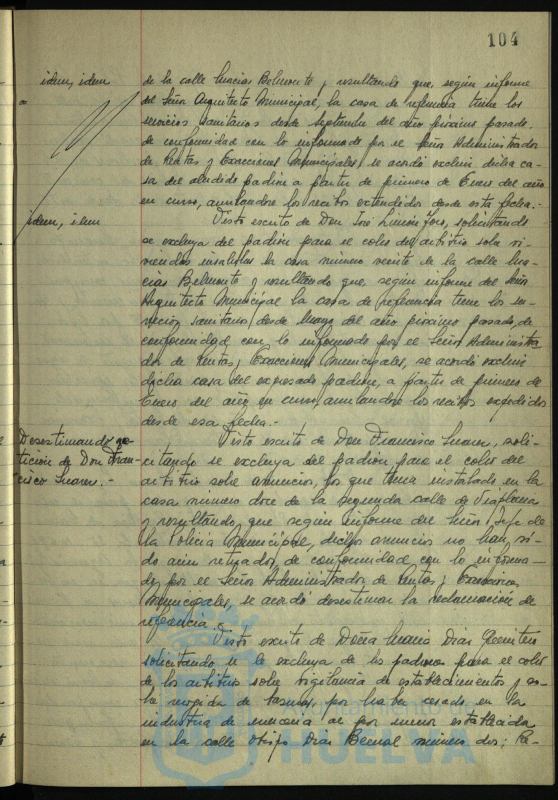 104
idem, idem
de la calle Macías Belmonte y resultando que, según informe
del Señor Arquitecto Municipal, la casa de referencia tiene los
servicios sanitarios desde Septiembre del año próximo pasado,
de conformidad con lo informado por el Señor Administrador
de Rentas y Exacciones Municipales, se acordó excluir dicha ca-
sa del aludido padrón a partir de primero de Enero del año
en curso, anulándose los recibos extendidos desde esta fecha.-
idem, idem
Visto escrito de Don José Limón, solicitando
se excluya del padrón para el cobro del arbitrio sobre vi-
viendas insalubres la casa número veinte de la calle Ma-
cías Belmonte y resultando que, según informe del Señor
Arquitecto Municipal la casa de referencia tiene los ser-
vicios sanitarios desde Marzo del año próximo pasado, de
conformidad con lo informado por el Señor Administra-
dor de Rentas y Exacciones Municipales, se acordó excluir
dicha casa del expresado padrón, a partir de primero de
Enero del año en curso, anulándose los recibos expedidos
desde esa fecha.-
Desestimando pe-
tición de Don Fran-
cisco Suarez.-
Visto escrito de Don Francisco Suarez, soli-
citando se excluya del padrón para el cobro del
arbitrio sobre anuncios, los que tiene instalado en la
casa número doce de la segunda calle de Viaplana
y resultando, que según informe del Señor Jefe de
la Policía Municipal, dichos anuncios no han si-
do aún retirados de conformidad con lo informa-
do por el Señor Administrador de Rentas y Exacciones
Municipales, se acordó desestimar la reclamación de
referencia.
Visto escrito de Doña María Díaz Quintero
solicitando se le excluya de los padrones para el cobro
de los arbitrios sobre vigilancia de establecimientos y so-
bre recogida de basuras, por haber cesado en la
industria de mercería al por menor establecida
en la calle Obispo Díaz Bernal número dos; Re-
HUELVA